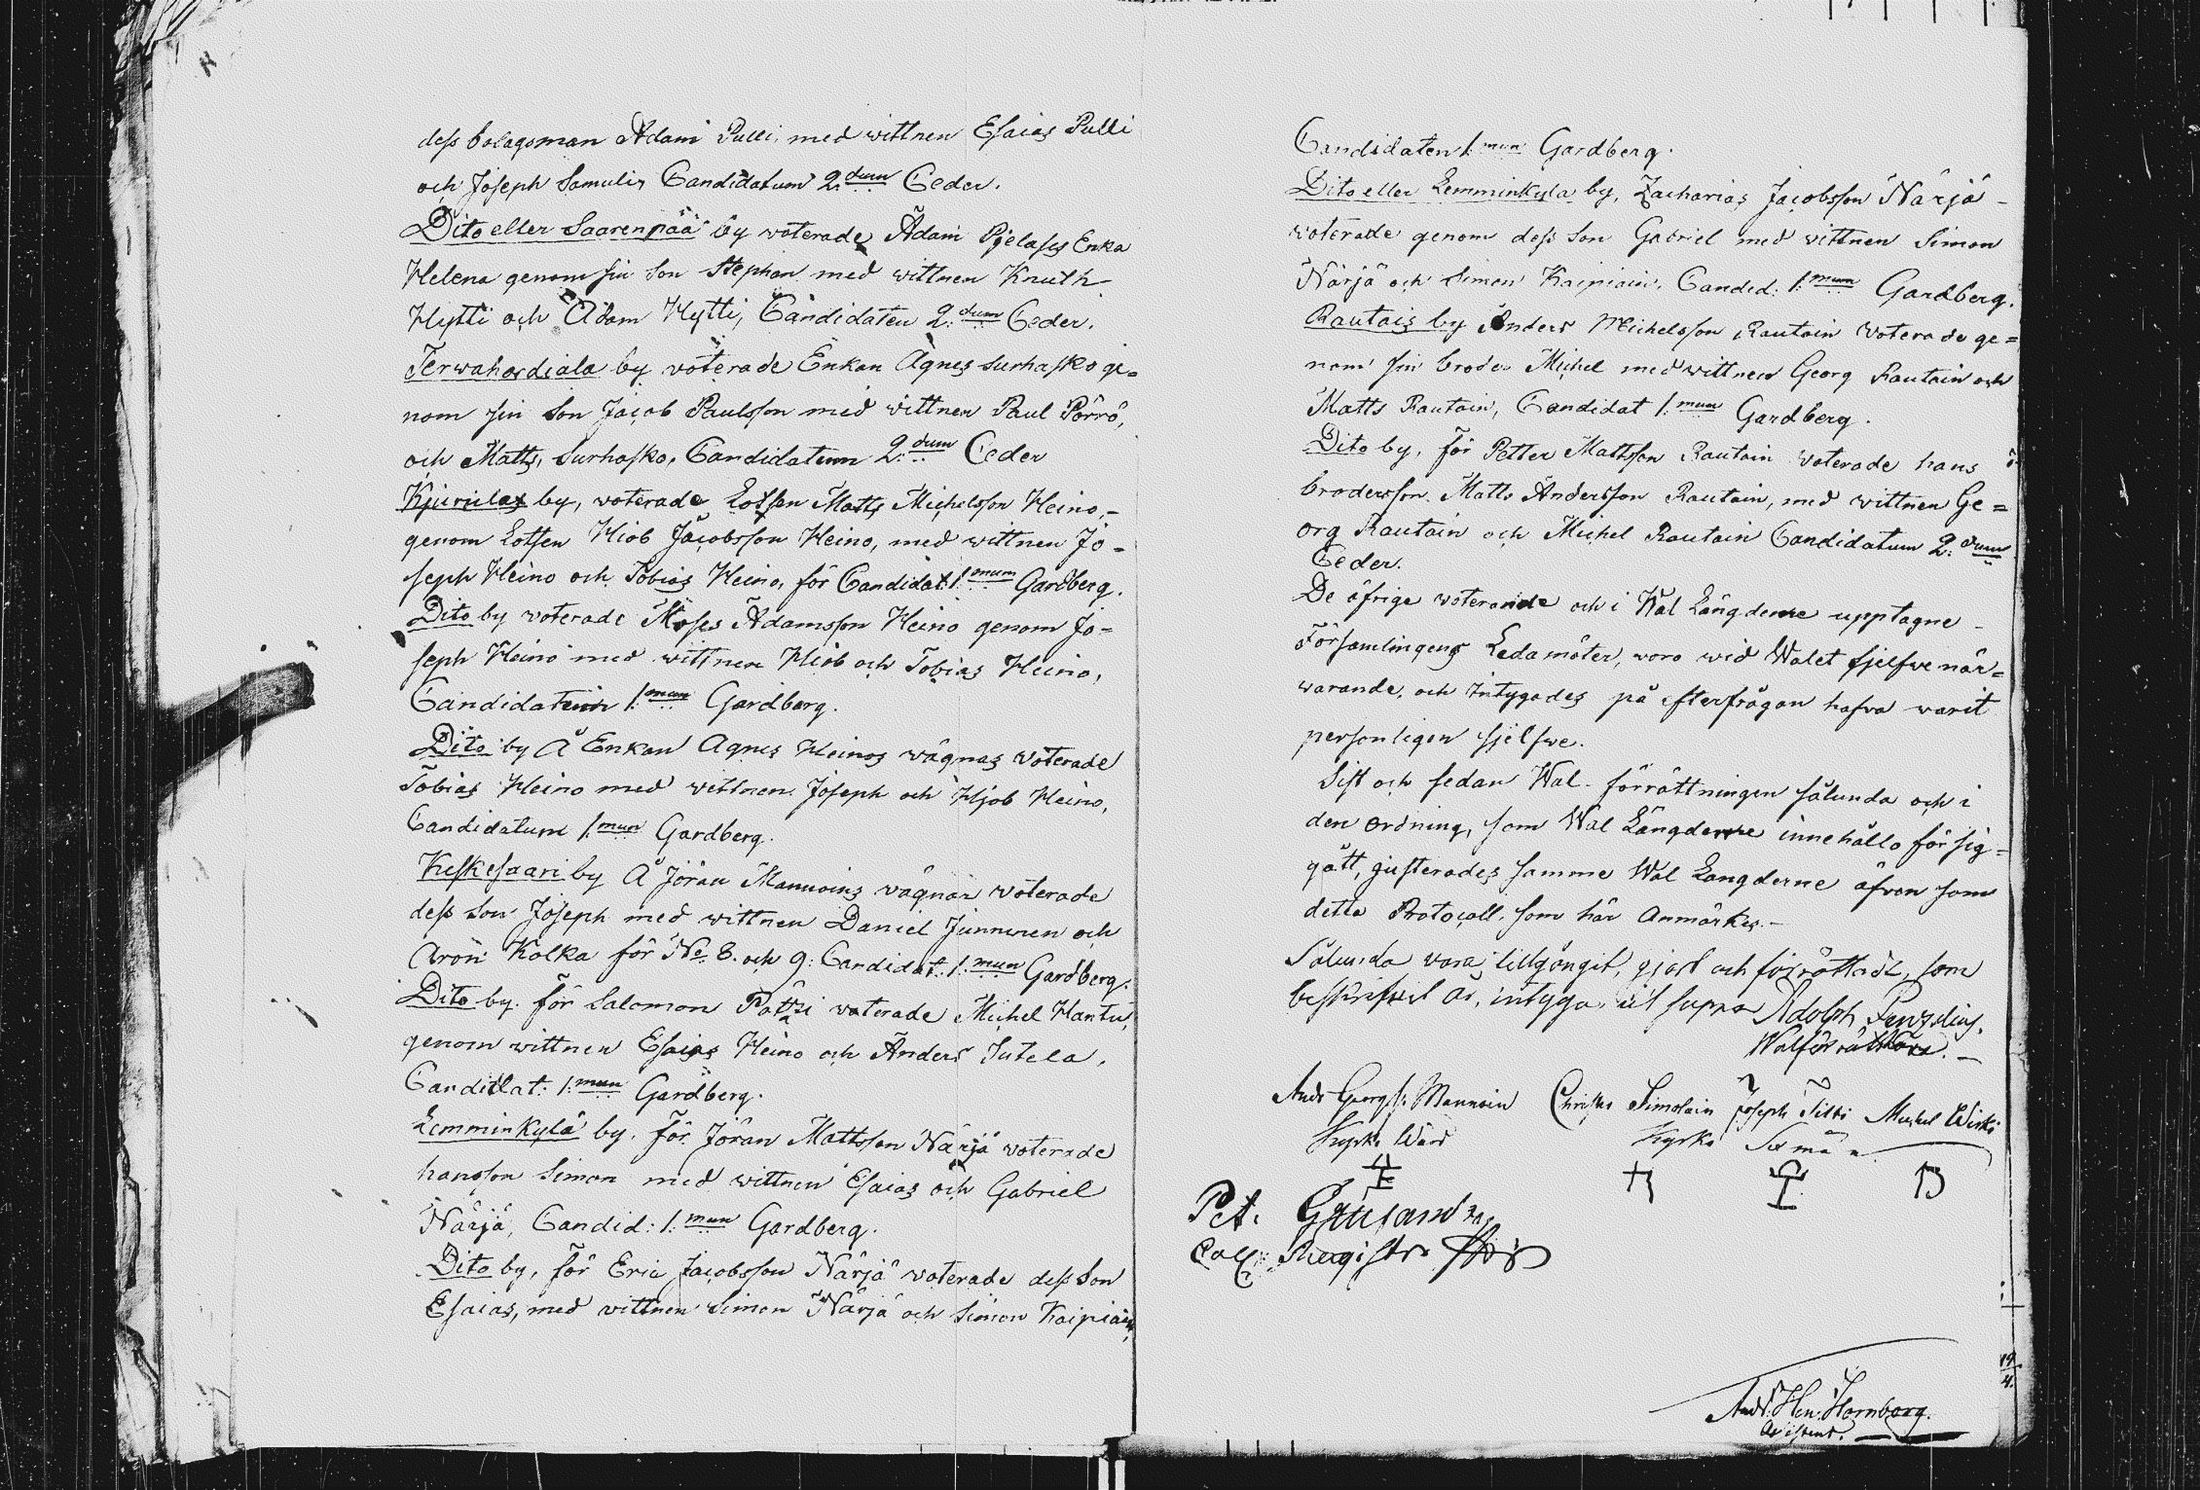 dess bolagsman Adam Pulli, med wittnen Esaias Pulli
och Joseph Samulin Candidatum 2:dum Ceder.
Dito eller Saarenpää by woterade Adam Pjelasis Enka
Helena genom sin Son Stephan med wittnen Knuth
Hytti och Adam Hytti, Candidaten 2:dum Ceder.
Terwahardiala by woterade Enkan Agnes Surhasko ge=
nom sin Son Jacob Paulsson med wittnen Paul Pörrö,
och Matts Surhasko, Candidatum 2:dum Ceder
Kjurulax by, woterade Lotsen Matts Michelsson Heino,-
genom Lotsen Hiob Jacobsson Heino, med wittnen Jo=
seph Heino och Tobias Heino, för Candidat: 1:mum Gardberg.
Dito by woterade Moses Adamsson Heino genom Jo=
seph Heino med wittnen Hiob och Tobias Heino,
Candidaten 1:mum Gardberg.
Dito by Å Enkan Agnes Heinos wägnas woterade
Tobias Heino med wittnen Joseph och Hjob Heino,
Candidatum 1:mum Gardberg.
Keskesaari by Å Jöran Mannoins vägnar woterade
dess Son Joseph med wittnen Daniel Junnunen och
Aron Kolka för No 8. och 9. Candidat: 1:mum Gardberg.
Dito by. för Salomon woterade Michel Hantu,
genom wittnen Esaias Heino och Anders Sutela,
Candidat: 1:mum Gardberg.
Lemminkylä by. för Jöran Mattsson Närjä woterade
hans son Simon med wittnen Esaias och Gabriel
Närjä, Candid: 1:mum Gardberg.
Dito by, för Eric Jacobsson Närjä woterade dess Son
Esaias, med wittnen Simon Närjä och Simon Kaipiain,
Candidaten 1:mum Gardberg.
Dito eller Lemminkyla by, Zacharias Jacobsson Närjä -
woterade genom dess Son Gabriel med wittnen Simon
Närjä och Simon Kaipiain, Candid: 1:mum Gardberg.
Rautais by Anders Michelsson Rautain woterade ge=
nom sin broder Michel med wittnen Georg Rautain och
Matts Rautain, Candidat 1:mum Gardberg.
Dito by, för Petter Mathsson Rautain woterade hans
brodersson Matts Andersson Rautain, med wittnen Ge=
org Rautain och Michel Rautain Candidatum 2:dum
Ceder.
De öfrige woterande och i Wal Längderne upptagne -
Församlingens Ledamöter, woro wid Walet sjelfwe när=
warande, och intygades på efterfrågan hafva warit
personligen sjelfwe.
Sist och sedan Wal-förrättningen sålunda och i
den ordning, som Wal Längderne innehålla för sig=
gått, justerades samme Wal Längderne äfven som
detta Protocoll, som här anmärkes.-
Sålunda vara tillgångit, gjort och förrättadt, som
beskrefvet är, intyga, ut supra Adolph
Walförrättare.
And: Georgss: Mannoin Christer Simolain Joseph Tilli Michel Wirki
Kyrko Wärd Kyrko Sexmän
Pet.
Coll: Registr:
19
4.
And: Hen: Hornborg.
Assistent.